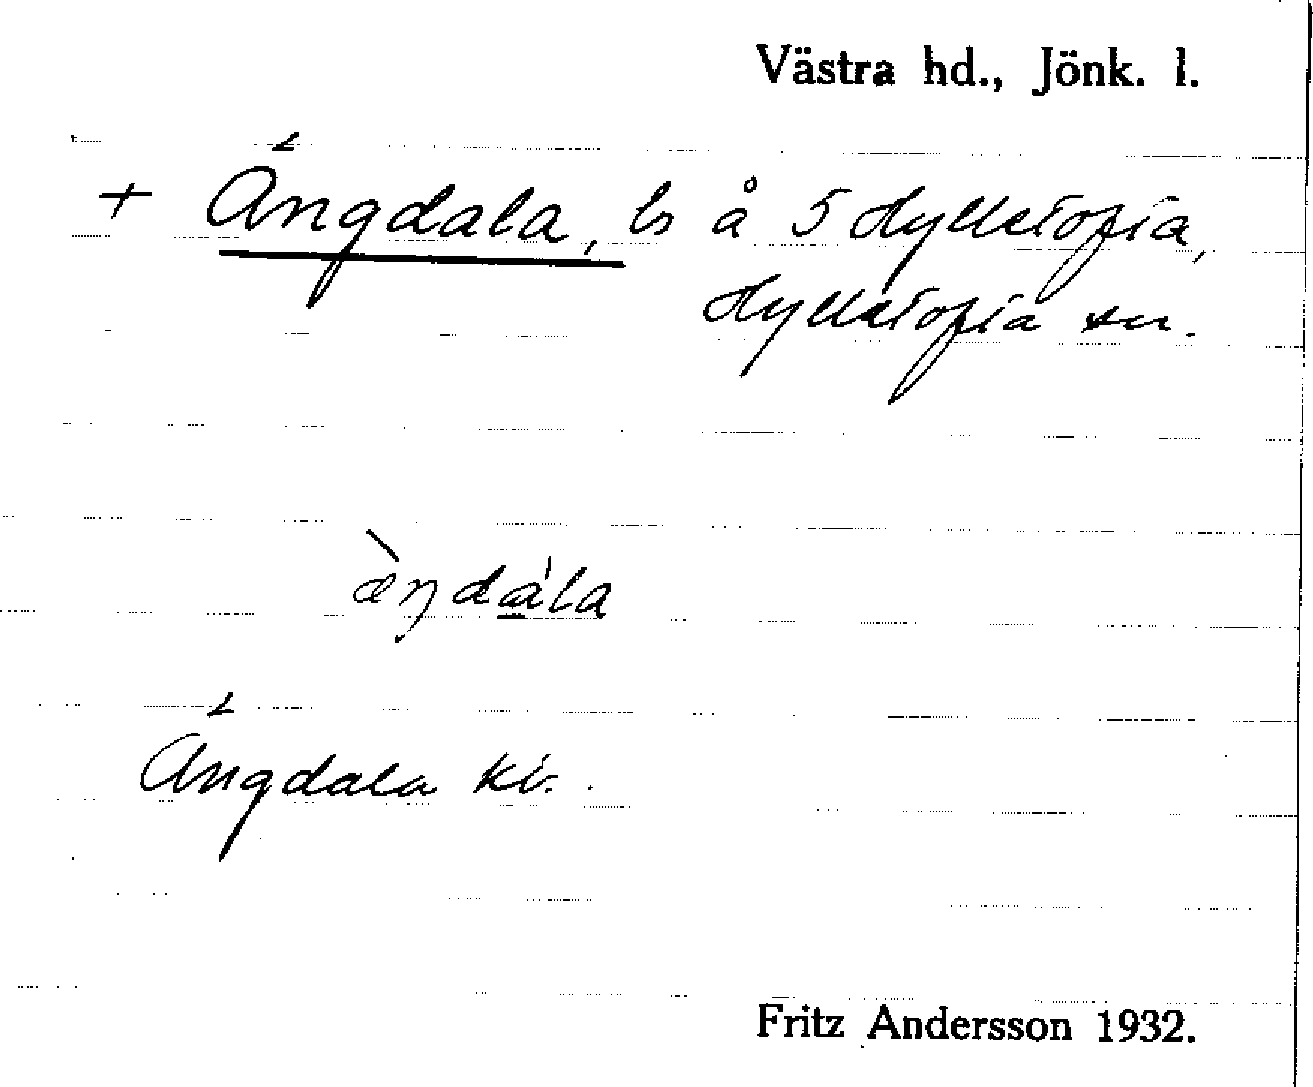 Västra hd., Jönk. l.
+ Ängdala, ls å 5 Hylletofta,
Hylletofta sn.
æ̀ŋdála
Ängdala kv.
Fritz Andersson 1932.